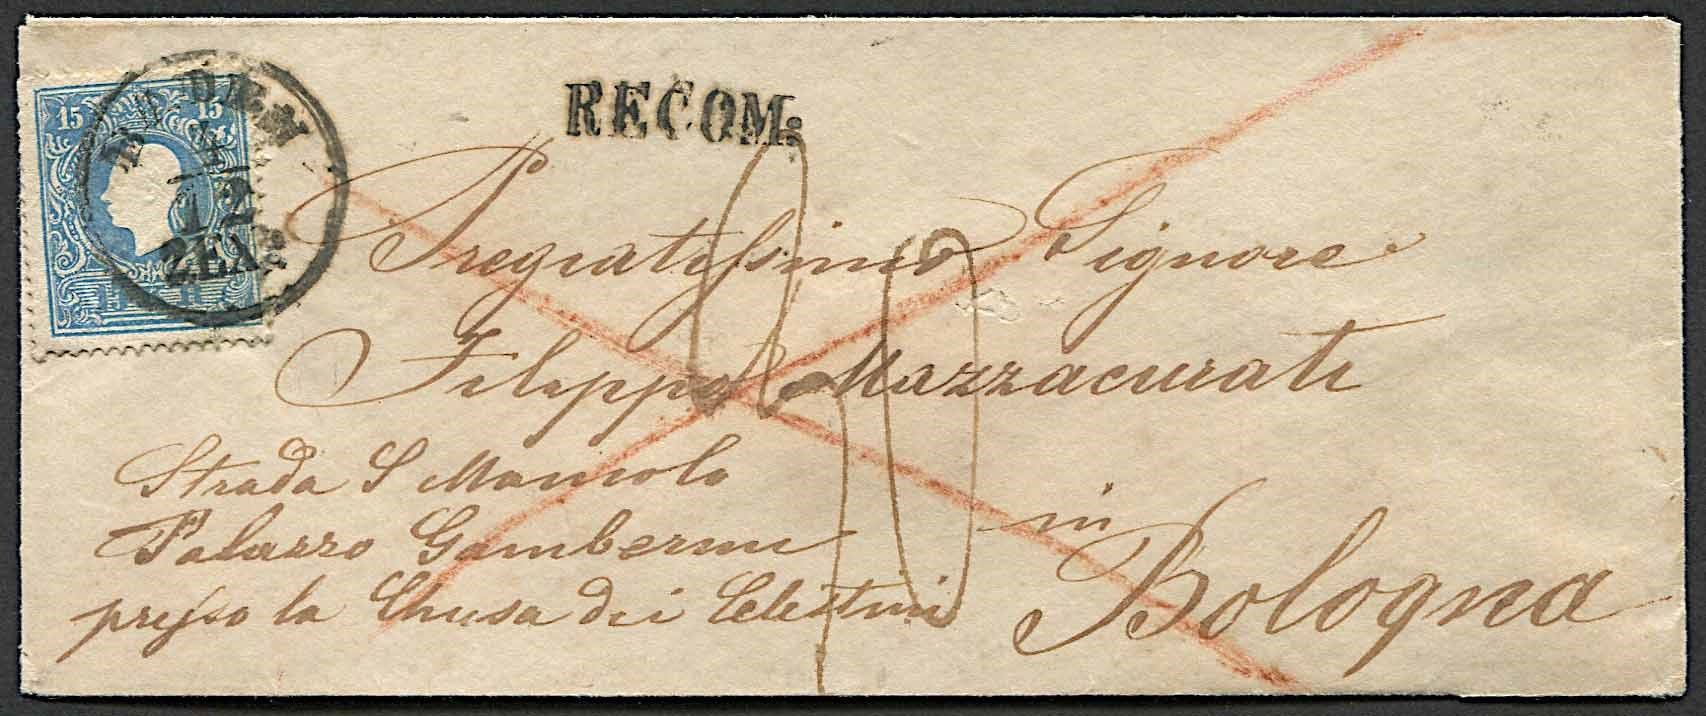 15 15
4
12
RECOM:
Pregiatissimo Signore
Filippo Mazzacurati
Strada S Mamolo
Palazzo Gamberini
presso la Chiesa dei Celestini
in
Bologna